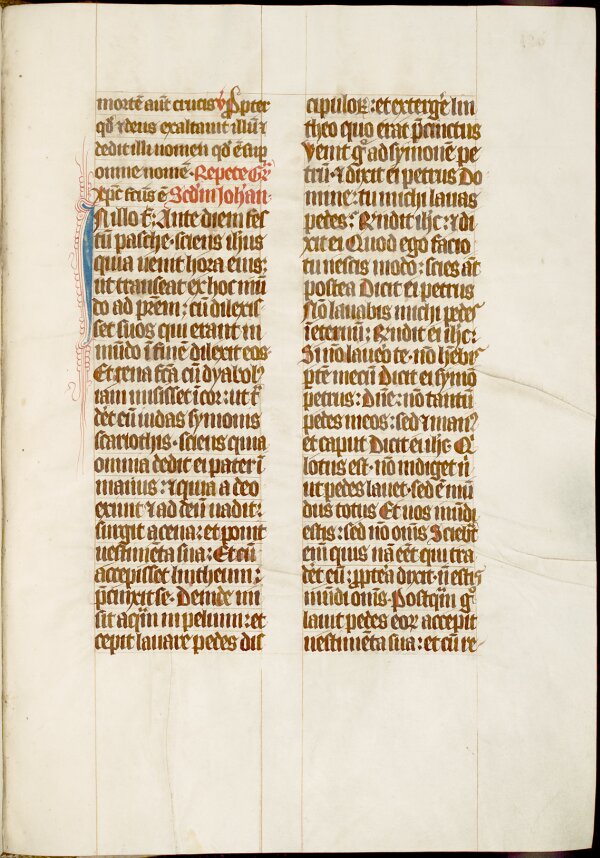 mortē aūt crucis ꝟ Propter
qḋ ⁊ deus exaltauit illū ⁊
dedit illi nomen qḋ ē sup
omne nomē· Repete Gͬ
xp̄c fcūs ē Scḋm Johan·
IN illo t̄· Ante diem fes
tū pasche· sciens ihus
quia uenit hora eius:
ut transeat ex hoc mū
do ad prēm: cū dilexis
set suos qui erant in
mūdo ī finē dilexit eos·
Et cena fc̄a cū dyabolꝰ
iam misisset ī cor: ut t̄
det eū iudas symonis
scariothis· sciens quia
omnia dedit ei pater ī
manus: ⁊ quia a deo
exiuit ⁊ ad deū uadit:
surgit a cena: et ponit
uestimēta sua: Et cū
accepisset lintheum:
p̄cinxit se· Deinde mi
sit aq̄m in peluim: et
cepit lauare pedes dis
cipuloꝝ: et extergē lin
theo quo erat p̄cinctus
Venit gͦ ad symonē pe
trū· ⁊ dixit ei petrus Do
mine: tu michi lauas
pedes: Rn̄dit ihc̄: ⁊ di
xit ei Quod ego facio
tu nescis modo: scies aūt
postea Dicit ei petrus
Nō lauabis michi pedes
ī eternū: Rn̄dit ei ihc̄:
Si nō lauero te· nō hēbis
ptē mecū Dicit ei symō
petrus: Dn̄e: nō tantū
pedes meos: sed ⁊ manꝰ
et caput Dicit ei ihc̄· Qͥ
lotus est· nō indiget n̄
ut pedes lauet· sed ē mū
dus totus Et uos mūdi
estis: sed nō om̄s Sciebat
eīm quis nā eēt qui tra
det eū: ꝓptea dixit· n̄ estis
mūdi om̄s· Postqm̄ gͦ
lauit pedes eoꝝ accepit
uestimēta sua: et cū re-